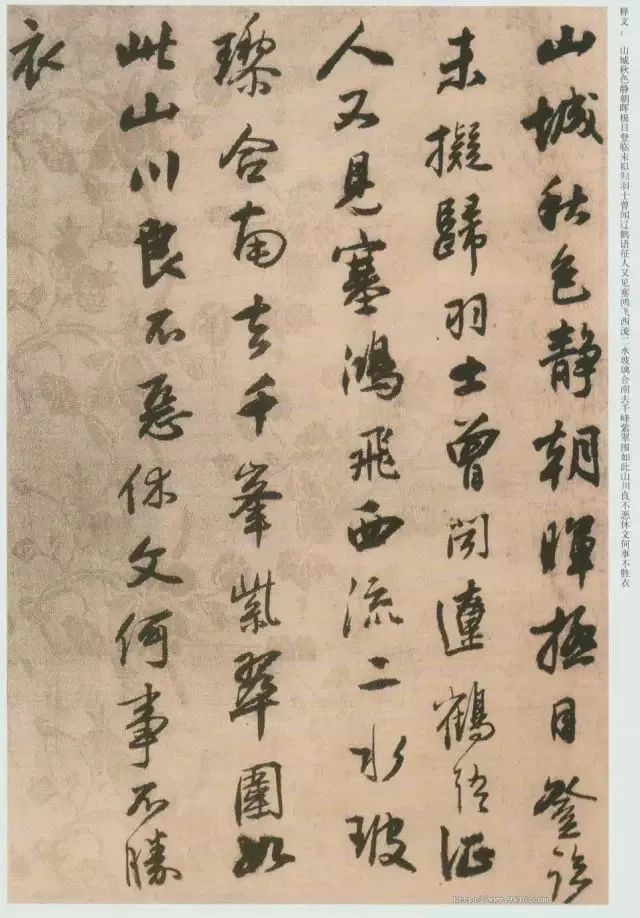 山城秋色静朝暉極目登臨
未擬歸羽士曽闻遼鶴語征
人又見塞鴻飛西流二水玻
瓈合南去千峯紫翠圍如
此山川良不惡休文何事不勝
衣
释文： 山城秋色静朝晖极目登临未拟归羽士曾闻辽鹤语征人又见塞鸿飞西流二水玻璃合南去千峰紫翠围如此山川良不恶休文何事不胜衣
http://www.9610.com